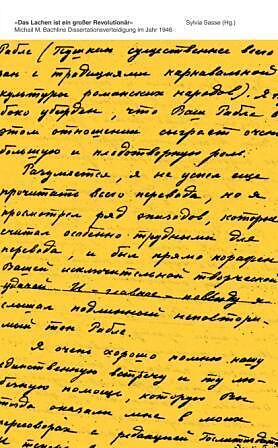 »Das Lachen ist ein großer Revolutionär« Sylvia Sasse (Hg.)
Michail M. Bachtins Dissertationsverteidigung im Jahr 1946
Рабле (Пушкин существенное всего
зан с традициями карнавальной
культуры романских народов). Я г
боко убежден, что Ваш Рабле в
этом отношении сыграет очень
большую и плодотворную роль.
Разумеется, я не успел еще
прочитать всего перевода, но я
просмотрел ряд эпизодов, которые
считал особенно трудными для
перевода, и был прямо поражен
Вашей исключительной творческой
удачей. И главное – повсюду я
слышал подлинный неповтори
мый тон Рабле.
Я очень хорошо помню нашу
единственную встречу и ту
помощь, которую Вы
тогда оказали мне в моих
переговорах с редакцией